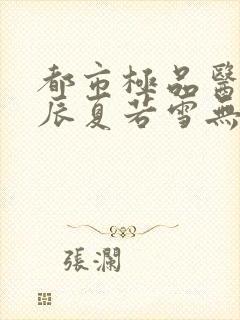 都市極品醫
辰夏若雪無
張瀾